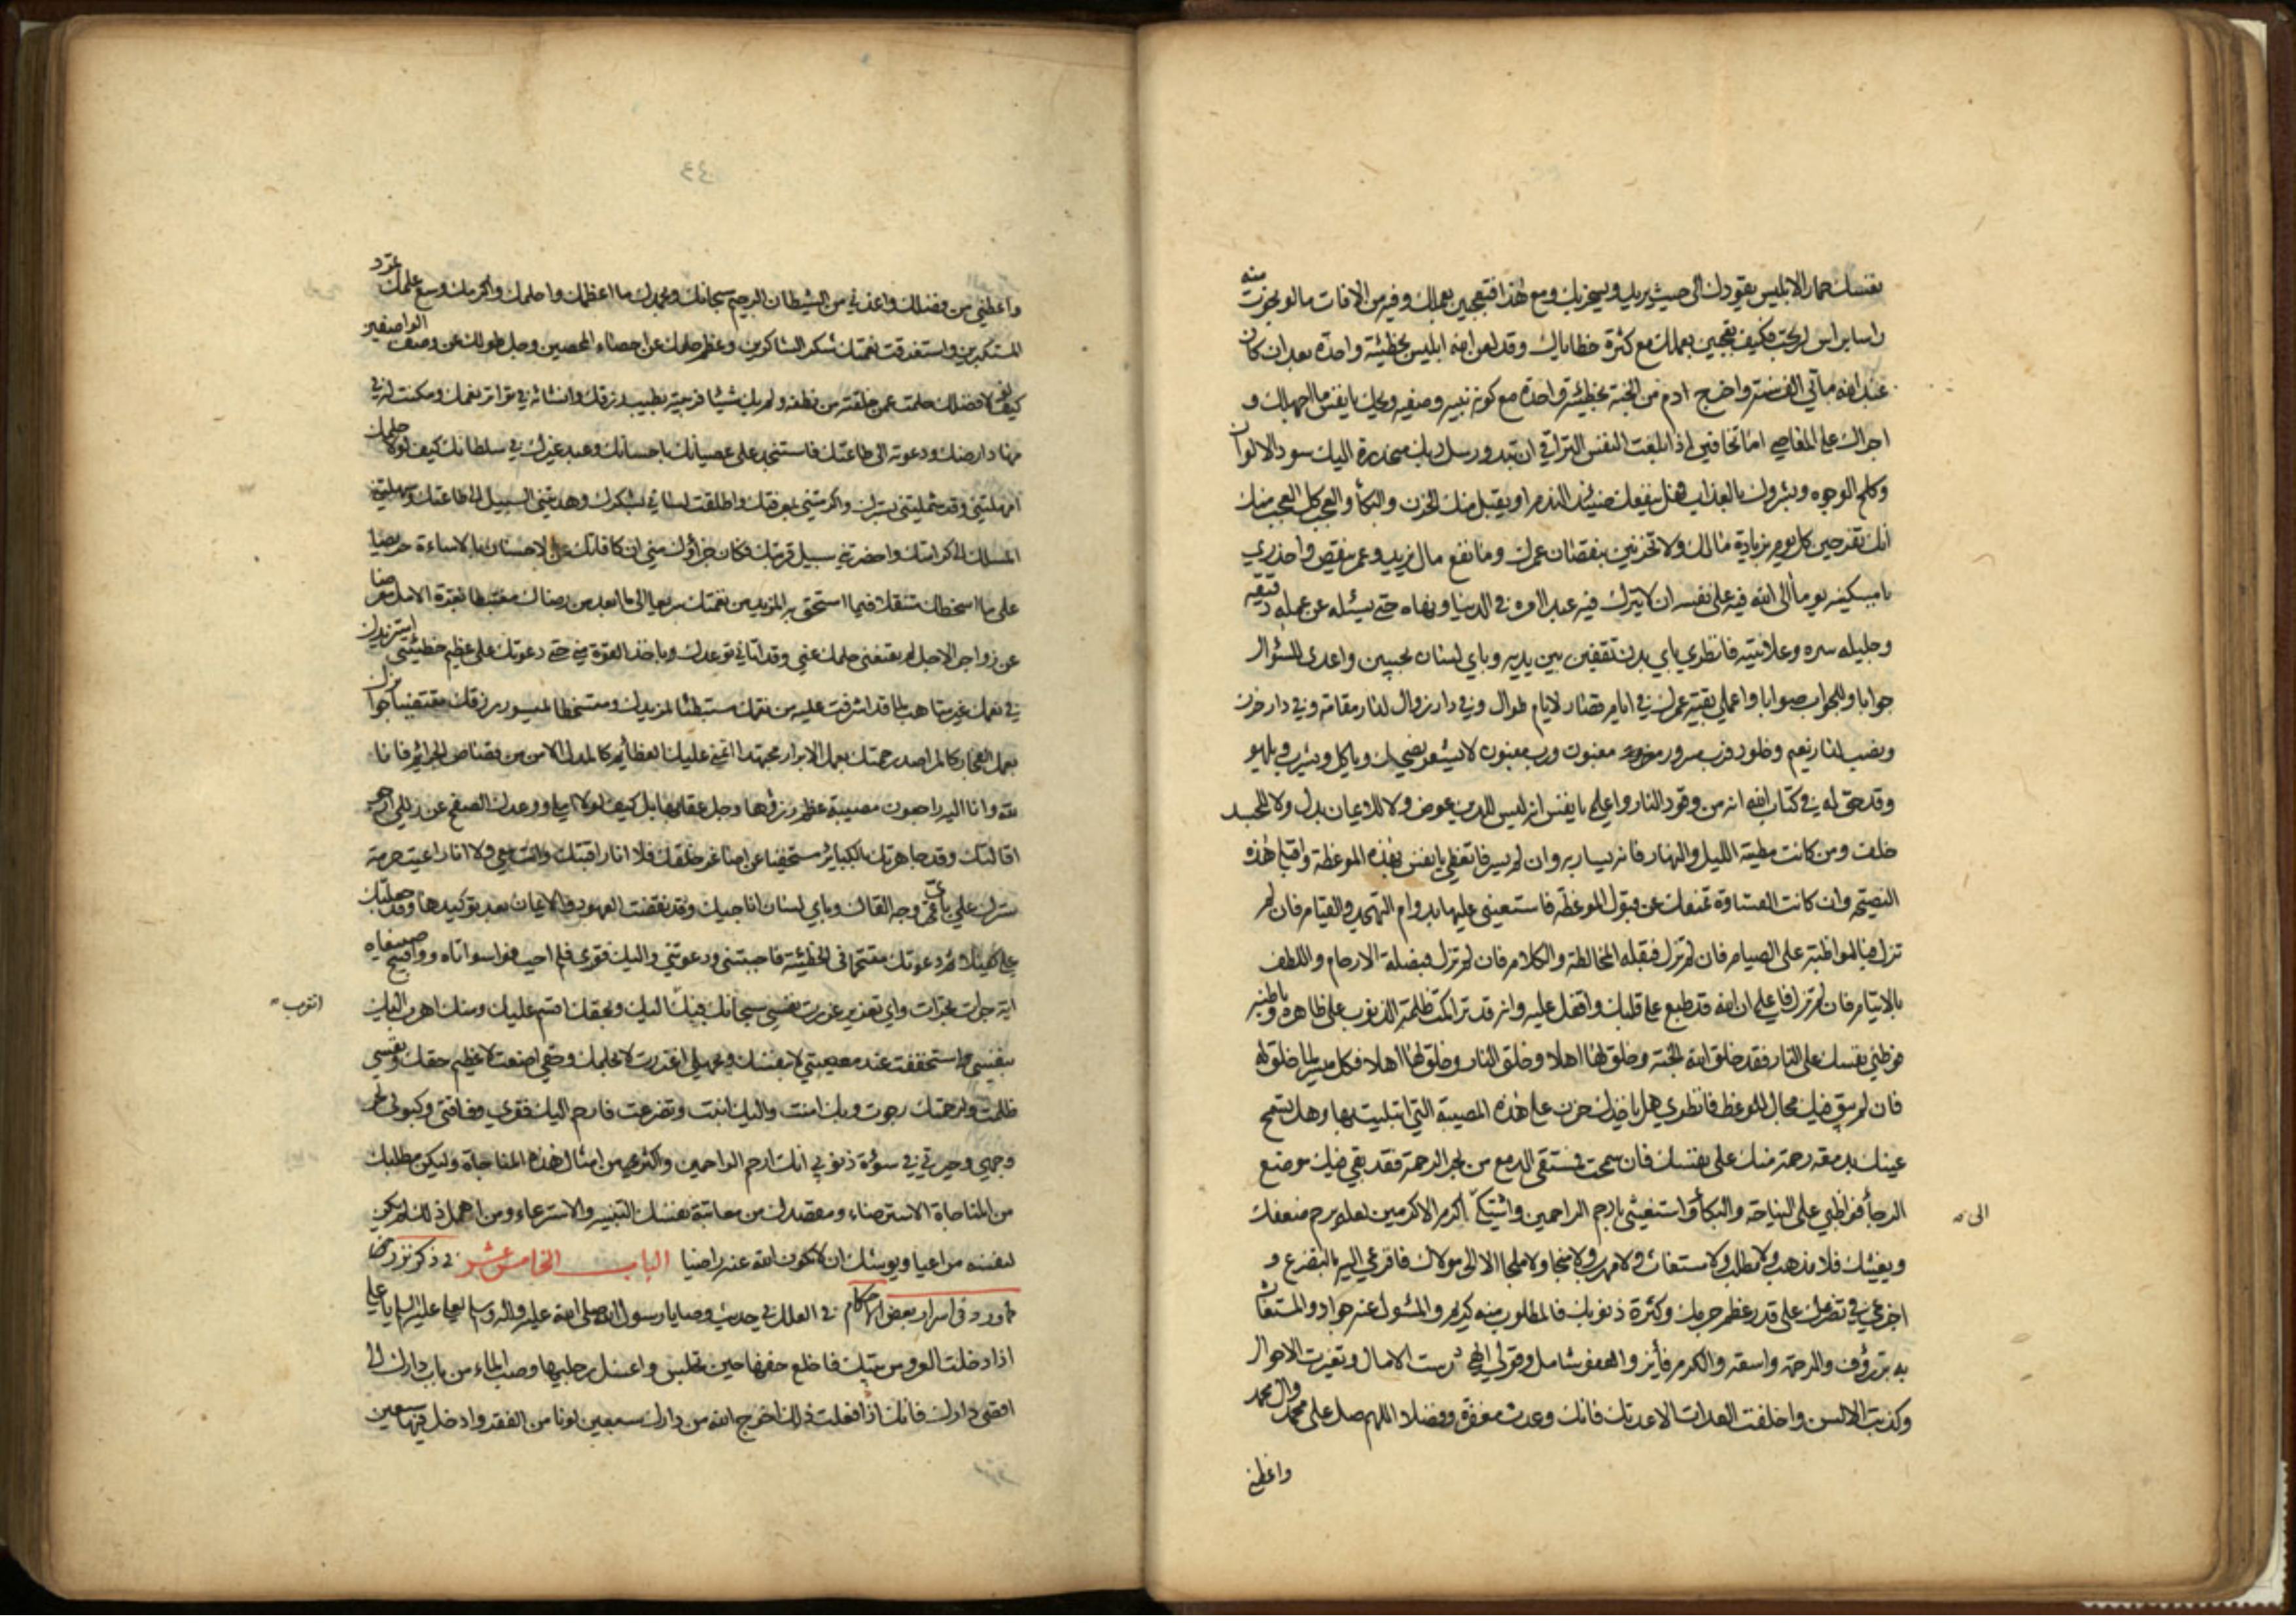 نفسك حمارا لابليس يقودك الى حيث يريد ويسخر بك ومع هذا فتعجبين بعملك وفيه من الافات ما لو نجوت منه
راسا براس لربحت فكيف تعجبين بعملك مع كثرة خطاياك وقد لعن الله ابليس بخطيئة واحدة بعد ان كان
عبد الله مأتي الف سنة واخرج ادم من الجنة بخطيئة واحدة مع كونه نبيه وصفيه ويحك يا نفس ما اجهلك و
اجراك على المعاصي اما تخافين اذا بلغت النفس التراقي ان تبدو رسل ربك منحدرة اليك سود الالوان
وكلح الوجوه وبشروك بالعذاب هل ينفعك حينئذ الندم او يقبل منك الحزن والبكأ والعجب كل العجب منك
انك تفرحين كل يوم بزيادة مالك ولا تحزنين بنقصان عمرك وما نفع مال يزيد وعمر ينقص واحذري
يا مسكينه يوما الى الله فيه على نفسه ان لا يترك فيه عبدا امره في الدنيا ونهاه حتى يسئله عن عمله دقيقه
وجليله سره وعلانيته فانظري باي بدن تقفين بين يديه وباي لسان تجيبين واعدي للسؤال
جوابا وللجواب صوابا واعملي بقية عمرك في ايام قصار لايام طوال وفي دار زوال لدار مقامة وفي دار حزن
ونصب لدار نعيم وخلود فرب مسرور مغبون ورب مغبون لا يشعر يضحك وياكل ويشرب ويلهو
وقد حق له في كتاب الله انه من وقود النار واعلمي يا نفس انه ليس للدين عوض ولا للايمان بدل ولا للجسد
خلف ومن كانت مطيته الليل والنهار فانه يسار به وان لم يسر فاتعظي يا نفس بهذه الموعظة واقبلي هذه
النصيحة وان كانت القساوة تمنعك عن قبول الموعظة فاستعيني عليها بدوام التهجد والقيام فان لم
تزل فبالمواظبة على الصيام فان لم تزل فبقلة المخالطة والكلام فان لم تزل فبصلة الارحام واللطف
بالايتام فان لم تزل فاعلمي ان الله قد طبع على قلبك واقفل عليه وانه قد تراكمت ظلمة الذنوب على ظاهره وباطنه
فوطني نفسك على النار فقد خلق الله الجنة وخلق لها اهلا وخلق النار وخلق لها اهلا فكل ميسر لما خلق له
فان لم يبق فيك مجال للوعظ فانظري هل ياخذك حزن على هذه المصيبة التي ابتليت بها وهل تسمح
عينك بدمعة رحمة منك على نفسك فان سمحت فمستقى الدمع من بحر الرحمة فقد بقي فيك موضع
الرجأ فواظبي على النياحة والبكأ واستغيثي بارحم الراحمين واشتكي اكرم الاكرمين لعله يرحم ضعفك
الى
ويغيثك فلا مذهب ولا مطلب ولا مستغاث ولا مهرب ولا منجا ولا ملجا الا الى مولاك فافزعي اليه بالتضرع و
اخشعي في تضرعك على قدر عظم جرمك وكثرة ذنوبك فالمطلوب منه كريم والمسئول عنه جواد والمستغاث
به بر رؤف والرحمة واسعة والكرم فأيز والعفو شامل وقولي الهي درست الامال وتغيرت الاحوال
وكذبت الالسن واخلفت العدات الا عدتك فانك وعدت مغفرة وفضلا اللهم صل على محمد وال محمد
واعطني
واعطني من فضلك واعذني من الشيطان الرجيم سبحانك وبحمدك ما اعظمك واحلمك واكرمك وسع علمك تمرد
المستكبرين واستغرقت نعمتك شكر الشاكرين وعظم حلمك عن احصاء المحصين وجل طولك عن وصف الواصفين
كيف لولا فضلك حلمت عمن خلقته من نطفة ولم يك شيئا فربيته بطيب رزقك وانشأته في تواتر نعمك ومكنت له في
مهاد ارضك ودعوته الى طاعتك فاستنجد على عصيانك باحسانك وعبد غيرك في سلطانك كيف لولا حلمك
امهلتني وقد شملتني بسترك واكرمتني بمعرفتك واطلقت لساني بشكرك وهديتني السبيل الى طاعتك وسهلتني
المسلك الى كرامتك واحضرتني سبيل قربتك فكان جزاؤك مني ان كافأتك عن الاحسان بالاساءة حريصا
على ما اسخطك متنقلا فيما استحق به المزيد من نقمتك سريعا الى ما ابعد من رضاك مغتبطا بغرة الامل معرضا
عن زواجر الاجل لم يقنعني حلمك عني وقد اتاني توعدك باخذ القوة مني حتى دعوتك على عظيم خطيئتي استزيدك
في نعمك غير متاهب لما قد اشرفت عليه من نقمتك مستبطئا لمزيدك ومتسخطا لميسور رزقك مقتضيا جوائزك
بعمل الفجار كالمراصد رحمتك بعمل الابرار مجتهدا اتمنى عليك العظايم كالمدل الامن من قصاص الجرائم فانا
لله وانا اليه راجعون مصيبة عظم رزؤها وجل عقابها بل كيف لولا املي ووعدك الصفح عن زللي ارجو
اقالتك وقد جاهرتك بالكبائر مستخفيا عن اصاغر خلقك فلا انا راقبتك وانت معي ولا انا راعيت حرمة
سترك علي باي وجه القاك وباي لسان اناجيك وقد نقضت العهود والايمان بعد توكيدها وجعلتك
علي كفيلا ثم دعوتك مقتحما في الخطيئة فاجبتني ودعوتني واليك فقري فلم اجب فواسواتاه وواقبح صنيعاه
اية جرأة تجرات واي تغرير غررت نفسي سبحانك فبك اليك وبحقك اقسم عليك ومنك اهرب اليك
اتقرب
بنفسي استخففت عند معصيتي لا بنفسك وبجهلي اغتررت لا بحلمك وحقي اضعت لا عظيم حقك ونفسي
ظلمت ولرحمتك رجوت وبك امنت واليك انبت وتضرعت فارحم اليك فقري وفاقتي وكبوتي لحر
وجهي وحيرتي في سوءة ذنوبي انك ارحم الراحمين واكثري من امثال هذه المناجاة وليكن مطلبك
من المناجاة الاسترضاء ومقصدك من معاتبة نفسك التنبيه والاسترعاء ومن اهمل ذلك لم يكن
لنفسه مراعيا ويوشك ان لا يكون الله عنه راضيا الباب الخامس عشر في ذكر نزر مما
ورد في اسرار بعض الاحكام في العلل في حديث وصايا رسول الله صلى الله عليه واله وسلم لعلي عليه السلام يا علي
اذا دخلت العروس بيتك فاخلع خفها حين تجلس واغسل رجليها وصب الماء من باب دارك الى
اقصى دارك فانك اذا فعلت ذلك اخرج الله من دارك سبعين لونا من الفقر وادخل فيها سبعين